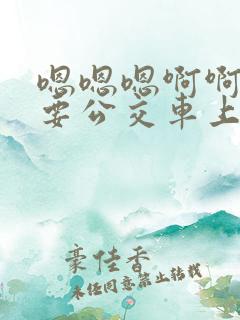 嗯嗯嗯啊啊
要公交車上
豪佳香
未经同意禁止转载